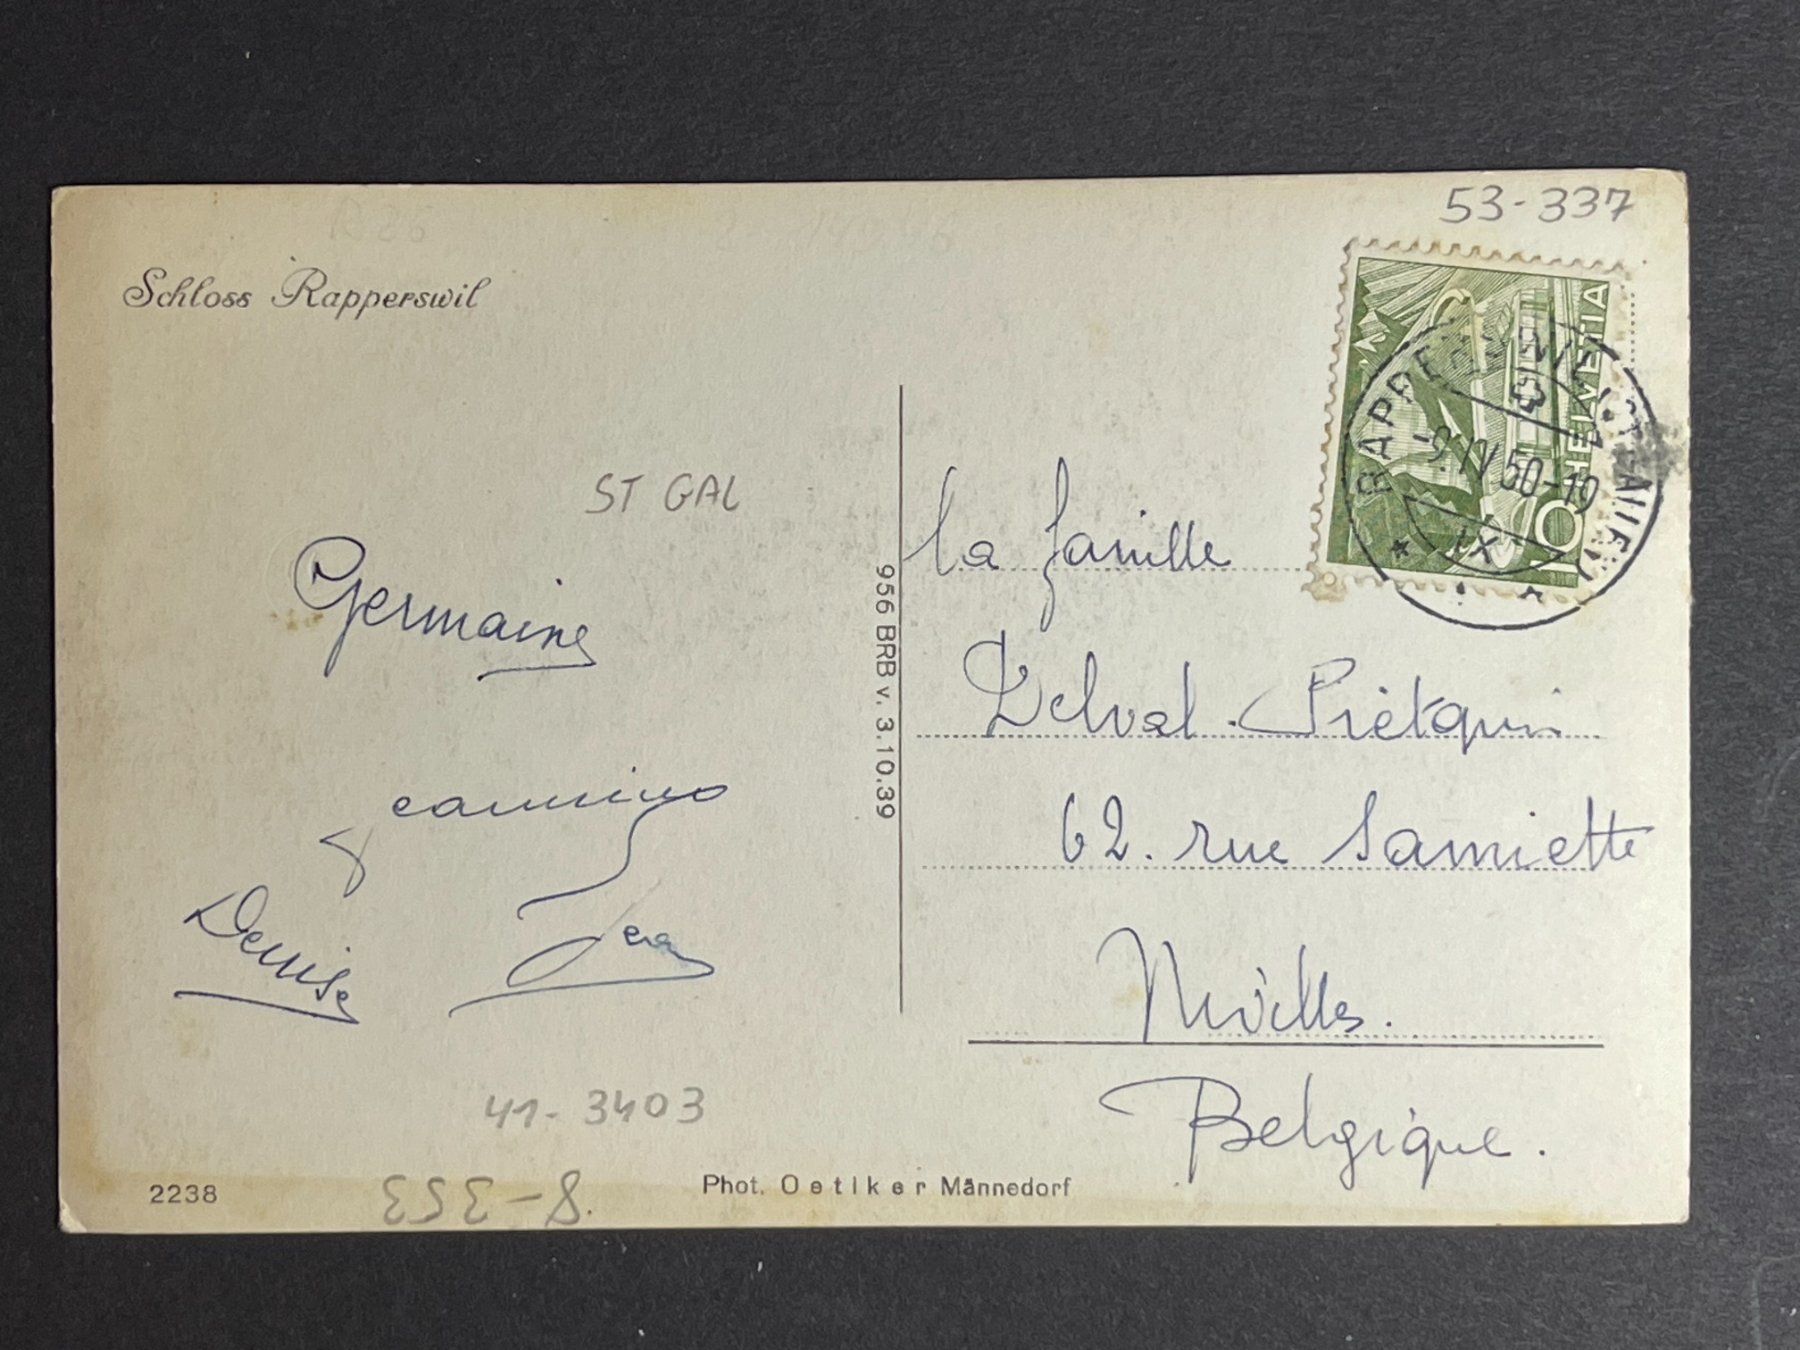 53-337
Schloss Rapperswil
HELVETIA
10
RAPPERSWIL (ST. GALLEN)
-9. IV 50-10
IX
ST GAL
Germaine
Denise
Jean
la famille
Delval-Piétquin
62. rue Samiette
Nivelles.
Belgique.
956 BRB v. 3.10.39
41-3403
2238
8-353
Phot. Oetiker Männedorf